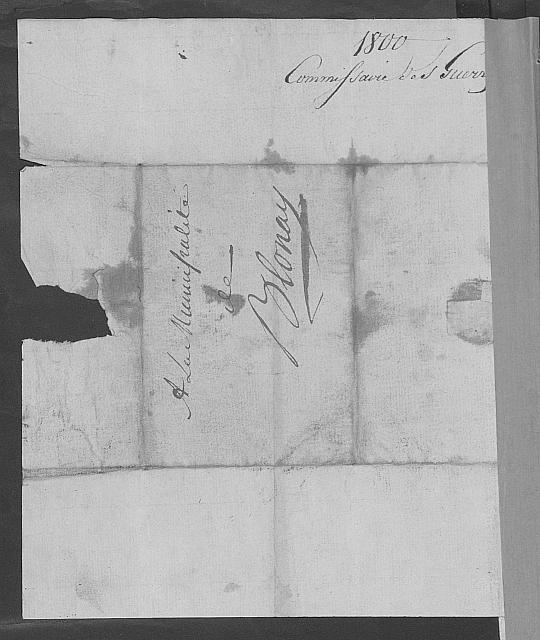 1800
Commissaire des Guerr
A La Municipalité
de
Blonay